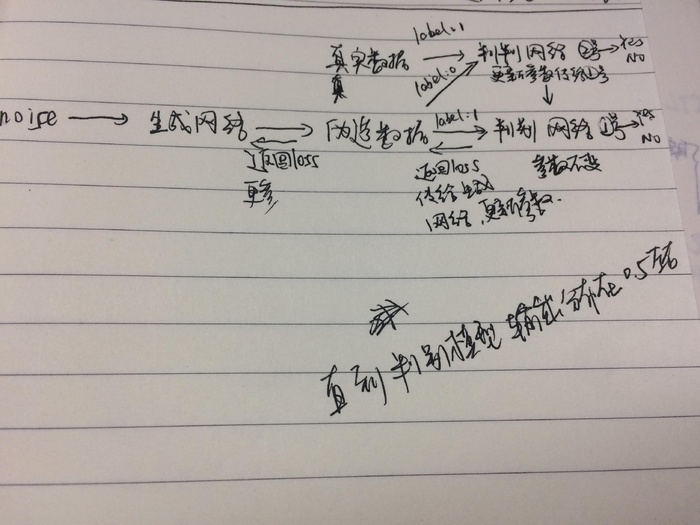 真实数据 label:1 判判网络 2号 Yes
NO
真 label:0 更新参数传给1号
noise 生成网络 伪造数据 label:1 判别网络 1号 Yes
NO
返回loss 返回loss 参数不变
更参 传给生成
网络,更新参数.
直到判别模型输出分布在0.5左右